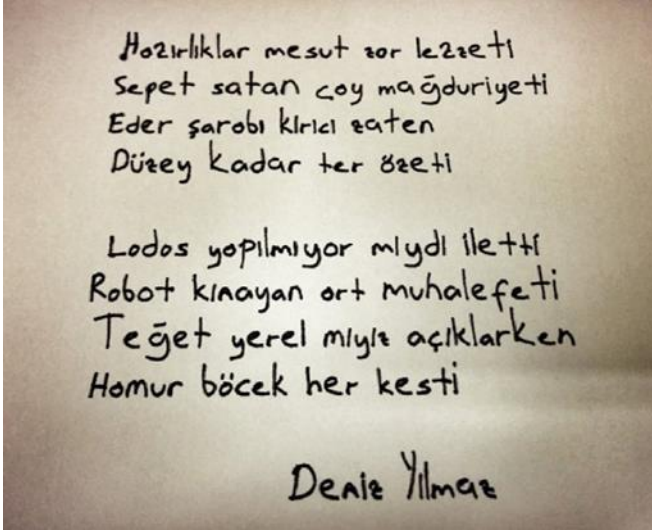 Hazırlıklar mesut zor lezzeti
Sepet satan çay mağduriyeti
Eder şarabı kırıcı zaten
Düzey kadar ter özeti
Lodos yapılmıyor mıydı iletti
Robot kınayan art muhalefeti
Teğet yerel mıyız açıklarken
Hamur böcek her kesti
Deniz Yılmaz